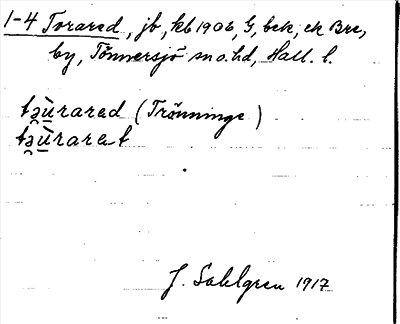 1-4 Torared, jb, kb 1906, G, bek, ek Bre,
by, Tönnersjö sn o. hd, Hall. l.
tʒu̱̇rared (Trönninge)
tʒu̱̇raret
J. Sahlgren 1917